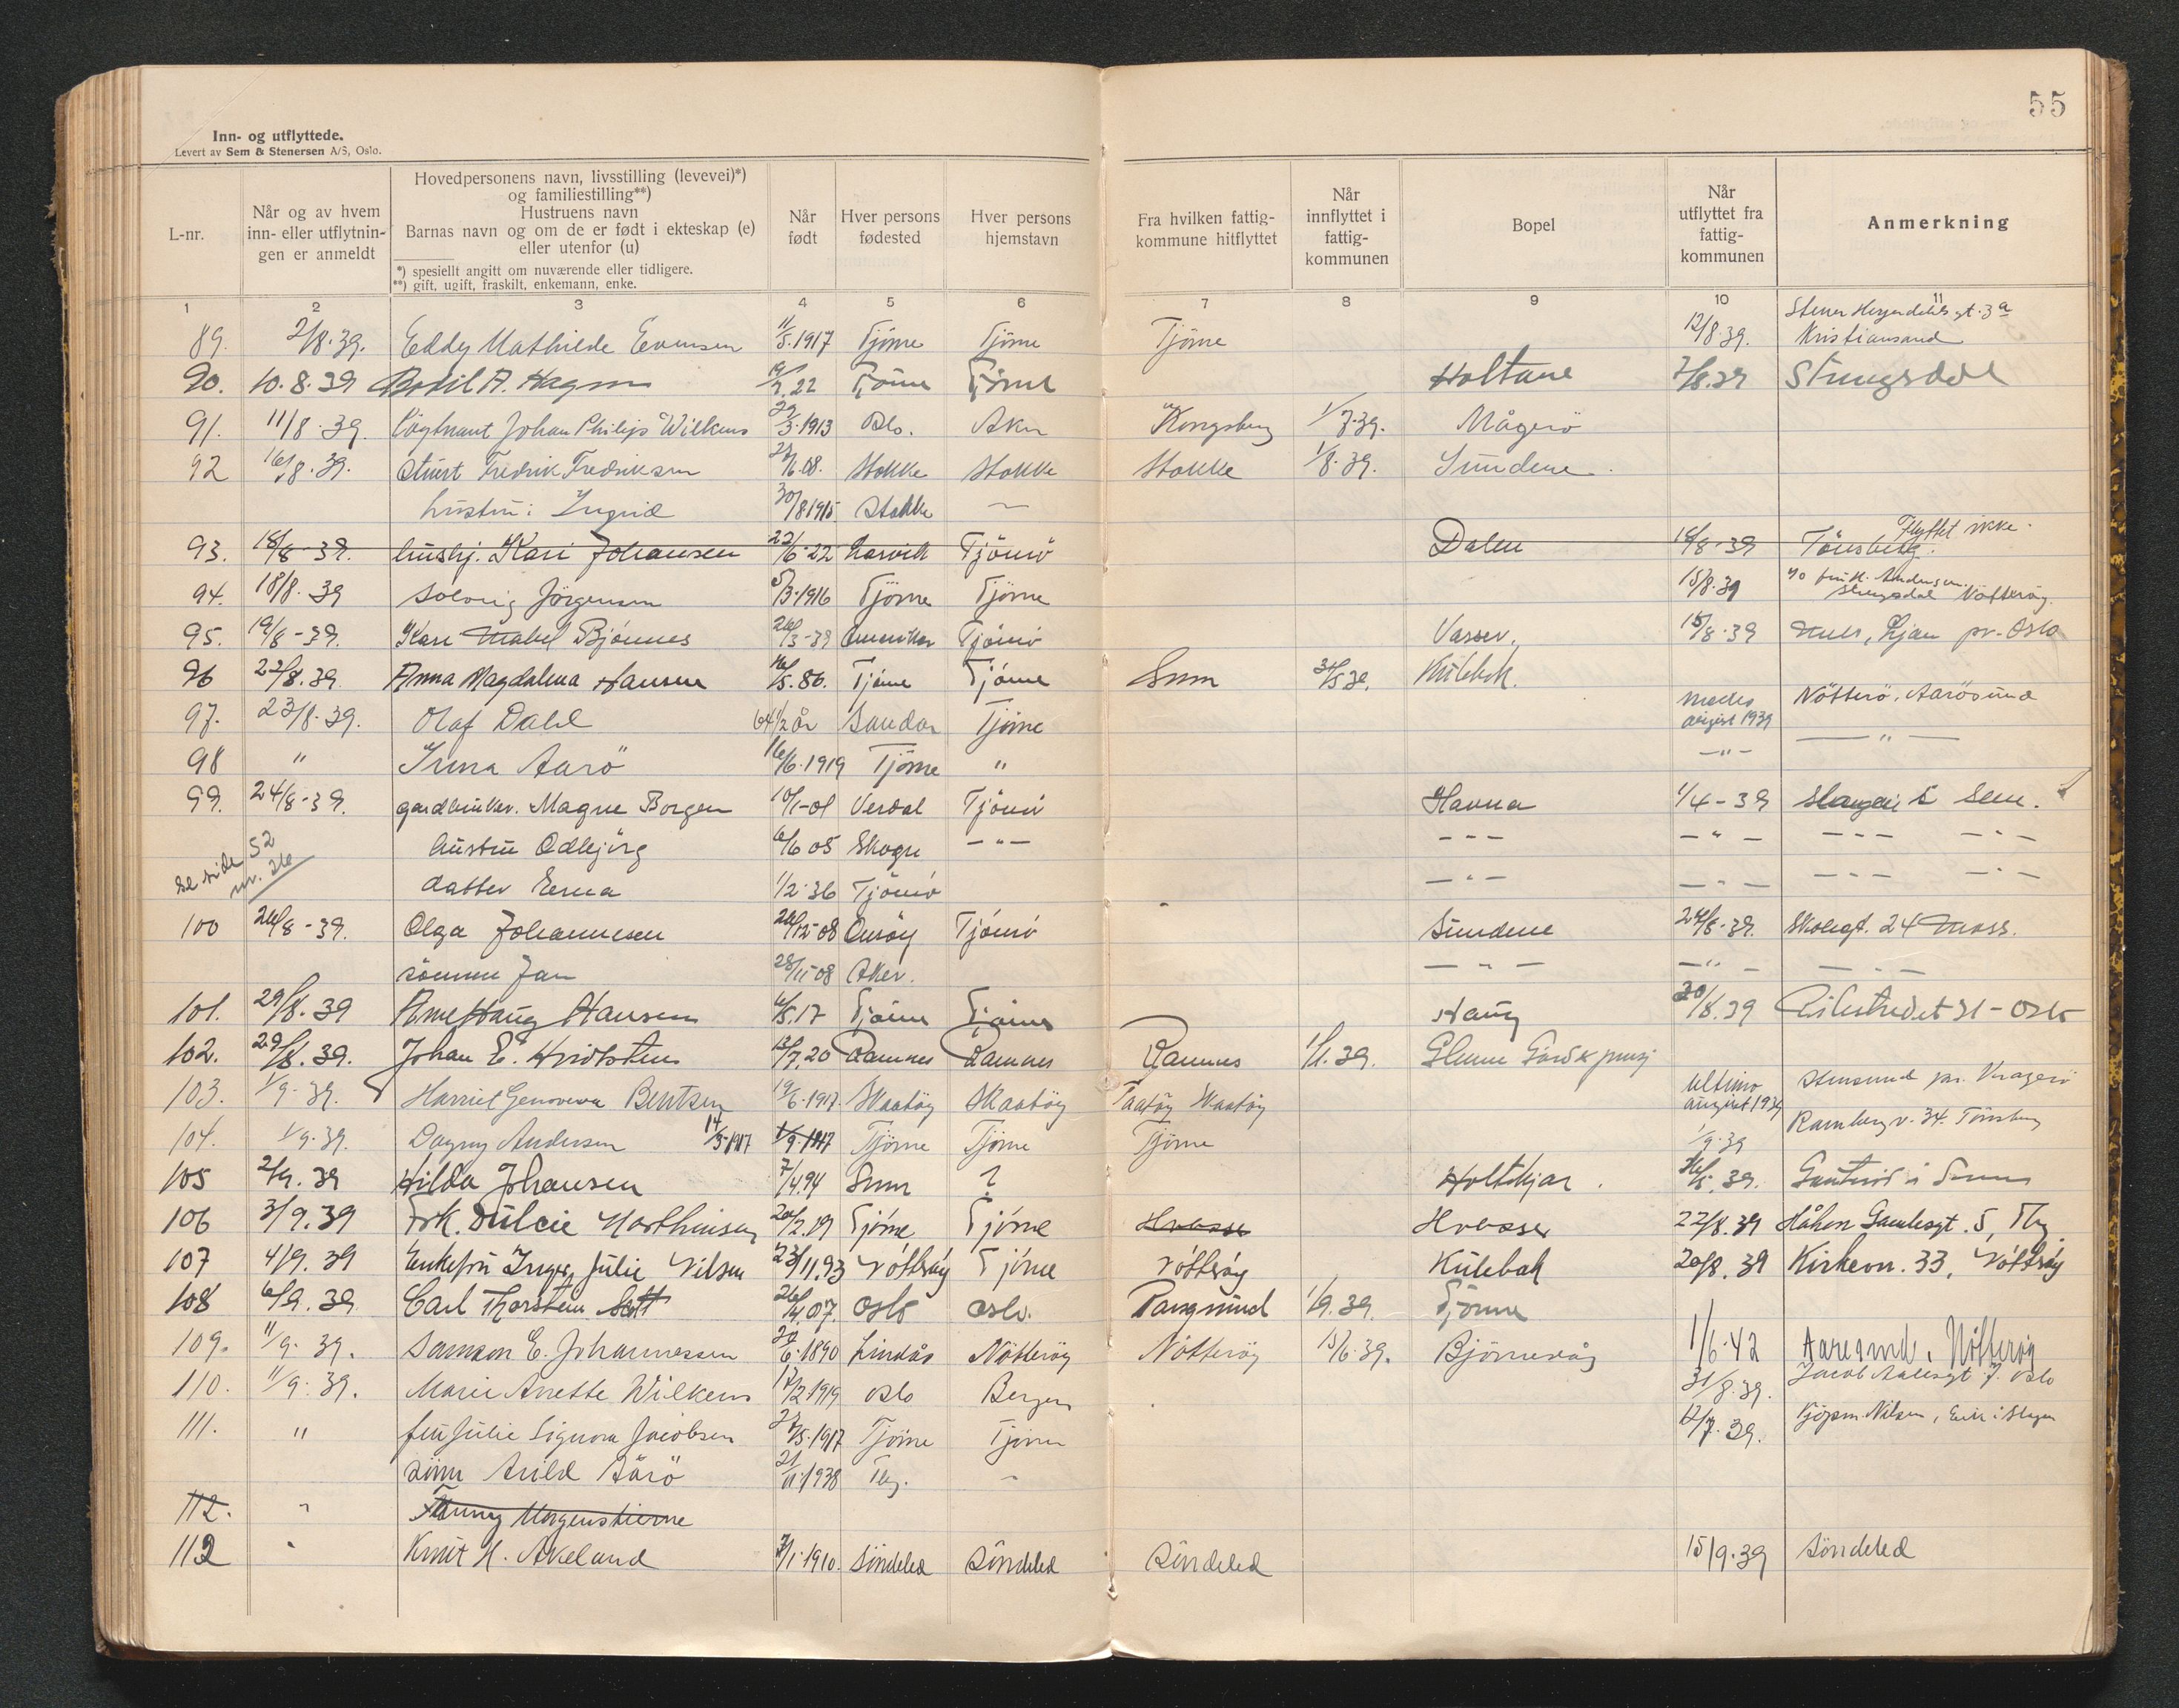 55
Inn- og utflyttede.
Levert av Sem & Stenersen A/S, Oslo.
L-nr.
Når og av hvem inn- eller utflytnin-gen er anmeldt
Hovedpersonens navn, livsstilling (levevei)*) og familiestilling**)
Hustruens navn
Barnas navn og om de er født i ekteskap (e) eller utenfor (u)
*) spesiellt angitt om nuværende eller tidligere.
**) gift, ugift, fraskilt, enkemann, enke.
Når født
Hver persons fødested
Hver persons hjemstavn
Fra hvilken fattig-kommune hitflyttet
Når innflyttet i fattig-kommunen
Bopel
Når utflyttet fra fattig-kommunen
Anmerkning
1 2 3 4 5 6 7 8 9 10 11
89. 2/8.39. Eddy Mathilde Evensen 11/5.1917 Tjöme Tjöme Tjöme 12/8.39. Kristiansand
90. 10.8.39 Bodil A. Hagen 22 Tjöme Tjöme Holtane 7/8.39
91. 11/8.39. Löytnant Johan Philip Wilkens 29/3.1913 Oslo. Aker Kongsberg 1/7.39. Mågerö
92 16/8.39. Fredrik Fredriksen 08. Stokke Stokke Stokke 1/8.39. Sundene
hustru: Ingrid 30/8 1915 Stokke
93. 18/8-39. hushj. Kari Johansen 22/6-22 Larvik Tjömö Dalen 18/8-39 Tönsberg. Flyttet ikke.
94. 18/8.39 Solveig Jörgensen 5/3.1916 Tjöme Tjöme 15/8.39 Nötteröy.
95. 19/8-39. Kari Mabel Bjönnes 26/3-39 Amerika Tjömö Vasser. 15/8.39 Ljan pr. Oslo
96 22/8.39. Anna Magdalena Hansen 16/5.86. Tjöme Tjöme Sem 31/5 39. Kulebek.
97. 23/8.39. Olaf Dahl 64 1/2 år Sandar Tjöme medio august 1939 Nötterö, Aarösund
98 " Irma Aarö 16/6.1919 Tjöme " -"- -"-
99. 24/8-39. gardbruker. Magne Borgen 10/1-01 Verdal Tjömö Havna 1/4-39 Slagen i Sem.
se side 52 nr. 26
hustru Odbjörg 6/6 05 Skogn -"- -"- -"- -"- -"-
datter Erna 1/2-36 Tjömö -"- -"- -"- -"-
100 26/8-39. Olga Johannesen 26/12-08 Onsöy Tjömö Sundene 24/8.39. Skolegt. 24 Moss.
sönnen Jan 28/11-08 Aker. -"- -"- -"-
101. 29/8.39 Arne Haug Hansen 6/5.17 Tjöme Tjöme Haug 30/8.39 Pilestredet 31 - Oslo
102. 29/8.39. Johan E. 13/7.20 Ramnes Ramnes Ramnes 1/1.39.
103. 1/9.39. Harriet Genoveva Bentsen 19/6.1917 Skaatöy Skaatöy Skaatöy ultimo august 1939 Stensund pr. Kragerö
104. 1/9.39. Dagny Andersen 14/5-1917 1/9.1917 Tjöme Tjöme Tjöme 1/9.39 Rambergv. 34. Tönsberg
105 2/9.39 Hilda Johansen 7/4.94 Sem ? Holtekjær. 39. i Sem
106 3/9.39 Frk. Dulcie Marthinsen 20/2.19 Tjöme Tjöme Hvasser Hvasser 22/8.39 Håkon Gamlesgt. 5, Tbg
107 4/9.39 Enkefru Inger Julie Nilsen 23/11.93 Nötteröy Tjöme Nötteröy Kulebak 20/8.39 Kirkevn. 33, Nötteröy
108 6/9.39. Carl Thorstein Sett 26/4.07. Oslo Oslo. Porsgrund 1/9.39. Tjöme
109. 11/9.39. Samson E. Johannessen 6.1890 Lindås Nötteröy Nötteröy 15/6.39. Bjönnevåg 1/6.42 Aarøsund, Nøtterøy
110. 11/9.39. Marie Anette Wilkens 17/2 1919 Oslo Bergen 31/8.39. Jacob Aallsgt. 7. Oslo
111. " fru Julie Signora Jacobsen 27/5.1917 Tjöme Tjöme 12/7.39. Kjöpm. Nilsen, Eik i Slagen
sönn Arild Aarö 21/11.1938 Tbg.
112. " Fanny Morgenstierne
112 " Knut H. Akeland 7/1.1910. Söndeled Söndeled Söndeled 15/9.39 Söndeled